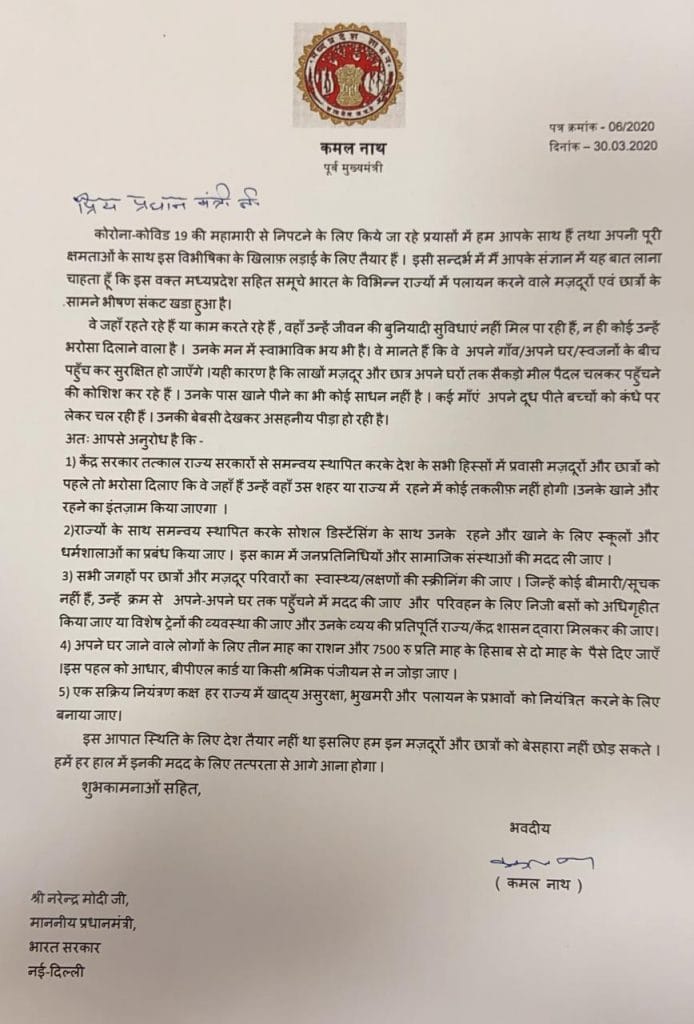 कमल नाथ
पूर्व मुख्यमंत्री
पत्र क्रमांक - 06/2020
दिनांक – 30.03.2020
प्रिय प्रधान मंत्री जी
कोरोना-कोविड 19 की महामारी से निपटने के लिए किये जा रहे प्रयासों में हम आपके साथ हैं तथा अपनी पूरी
क्षमताओं के साथ इस विभीषिका के खिलाफ़ लड़ाई के लिए तैयार हैं । इसी सन्दर्भ में मैं आपके संज्ञान में यह बात लाना
चाहता हूँ कि इस वक्त मध्यप्रदेश सहित समूचे भारत के विभिन्न राज्यों में पलायन करने वाले मज़दूरों एवं छात्रों के
सामने भीषण संकट खडा हुआ है।
वे जहाँ रहते रहे हैं या काम करते रहे हैं , वहाँ उन्हें जीवन की बुनियादी सुविधाएं नहीं मिल पा रही हैं, न ही कोई उन्हें
भरोसा दिलाने वाला है । उनके मन में स्वाभाविक भय भी है। वे मानते हैं कि वे अपने गाँव/अपने घर/स्वजनों के बीच
पहुँच कर सुरक्षित हो जाएँगे ।यही कारण है कि लाखों मज़दूर और छात्र अपने घरों तक सैकड़ो मील पैदल चलकर पहुँचने
की कोशिश कर रहे हैं । उनके पास खाने पीने का भी कोई साधन नहीं है । कई माँएं अपने दूध पीते बच्चों को कंधे पर
लेकर चल रही हैं । उनकी बेबसी देखकर असहनीय पीड़ा हो रही है।
अतः आपसे अनुरोध है कि -
1) केंद्र सरकार तत्काल राज्य सरकारों से समन्वय स्थापित करके देश के सभी हिस्सों में प्रवासी मज़दूरों और छात्रों को
पहले तो भरोसा दिलाए कि वे जहाँ हैं उन्हें वहाँ उस शहर या राज्य में रहने में कोई तकलीफ़ नहीं होगी ।उनके खाने और
रहने का इंतज़ाम किया जाएगा ।
2)राज्यों के साथ समन्वय स्थापित करके सोशल डिस्टेंसिंग के साथ उनके रहने और खाने के लिए स्कूलों और
धर्मशालाओं का प्रबंध किया जाए । इस काम में जनप्रतिनिधियों और सामाजिक संस्थाओं की मदद ली जाए ।
3) सभी जगहों पर छात्रों और मज़दूर परिवारों का स्वास्थ्य/लक्षणों की स्क्रीनिंग की जाए । जिन्हें कोई बीमारी/सूचक
नहीं हैं, उन्हें क्रम से अपने-अपने घर तक पहुँचने में मदद की जाए और परिवहन के लिए निजी बसों को अधिगृहीत
किया जाए या विशेष ट्रेनों की व्यवस्था की जाए और उनके व्यय की प्रतिपूर्ति राज्य/केंद्र शासन द्वारा मिलकर की जाए।
4) अपने घर जाने वाले लोगों के लिए तीन माह का राशन और 7500 रु प्रति माह के हिसाब से दो माह के पैसे दिए जाएँ
।इस पहल को आधार, बीपीएल कार्ड या किसी श्रमिक पंजीयन से न जोड़ा जाए ।
5) एक सक्रिय नियंत्रण कक्ष हर राज्य में खाद्य असुरक्षा, भुखमरी और पलायन के प्रभावों को नियंत्रित करने के लिए
बनाया जाए।
इस आपात स्थिति के लिए देश तैयार नहीं था इसलिए हम इन मज़दूरों और छात्रों को बेसहारा नहीं छोड़ सकते ।
हमें हर हाल में इनकी मदद के लिए तत्परता से आगे आना होगा ।
शुभकामनाओं सहित,
भवदीय
( कमल नाथ )
श्री नरेन्द्र मोदी जी,
माननीय प्रधानमंत्री,
भारत सरकार
नई-दिल्ली